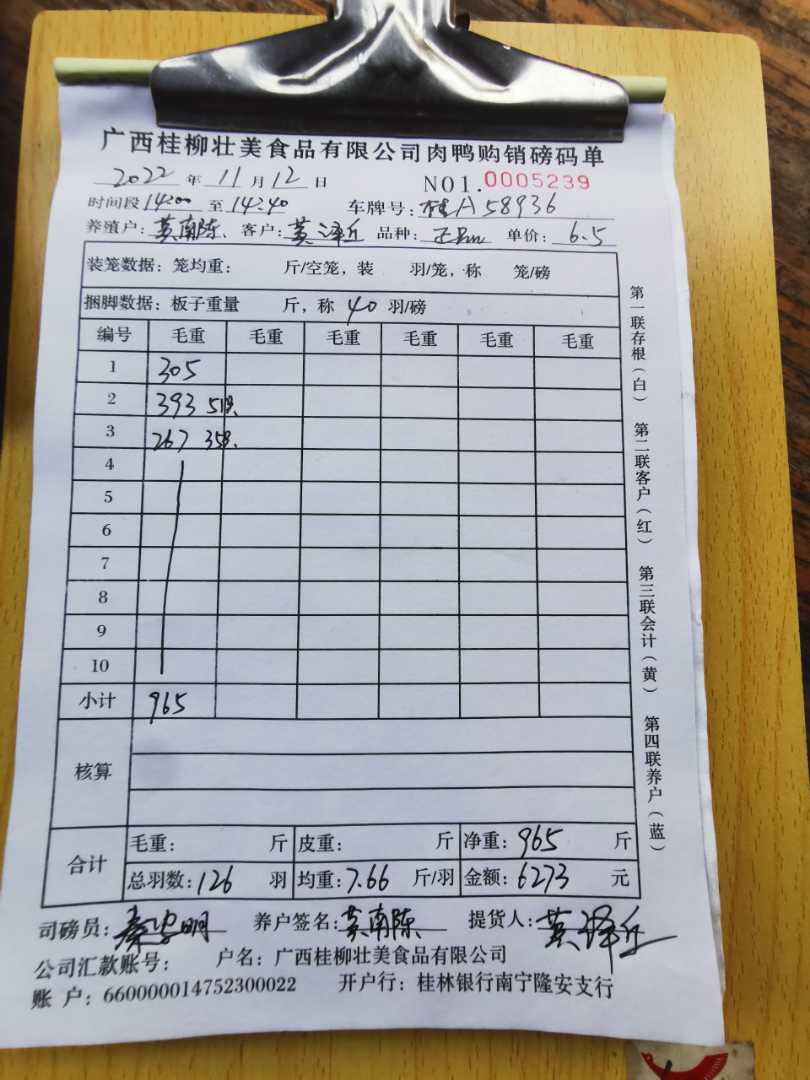 广西桂柳壮美食品有限公司肉鸭购销磅码单
2022 年 11 月 12 日 NO1.0005239
时间段 14:00 至 14:40 车牌号: 桂A58936
养殖户: 黄南陈、 客户: 黄泽丘 品种: 单价: 6.5
装笼数据: 笼均重: 斤/空笼, 装 羽/笼, 称 笼/磅
捆脚数据: 板子重量 斤, 称 40 羽/磅
编号 毛重 毛重 毛重 毛重 毛重 毛重
1 305
2 393 51只、
3 267 35只、
4
5
6
7
8
9
10
小计 965
核算
合计
毛重: 斤 皮重: 斤 净重: 965 斤
总羽数: 126 羽 均重: 7.66 斤/羽 金额: 6273 元
司磅员: 养户签名: 黄南陈 提货人: 黄泽丘
公司汇款账号: 户名: 广西桂柳壮美食品有限公司
账 户: 660000014752300022 开户行: 桂林银行南宁隆安支行
第一联存根(白) 第二联客户(红) 第三联会计(黄) 第四联养户(蓝)